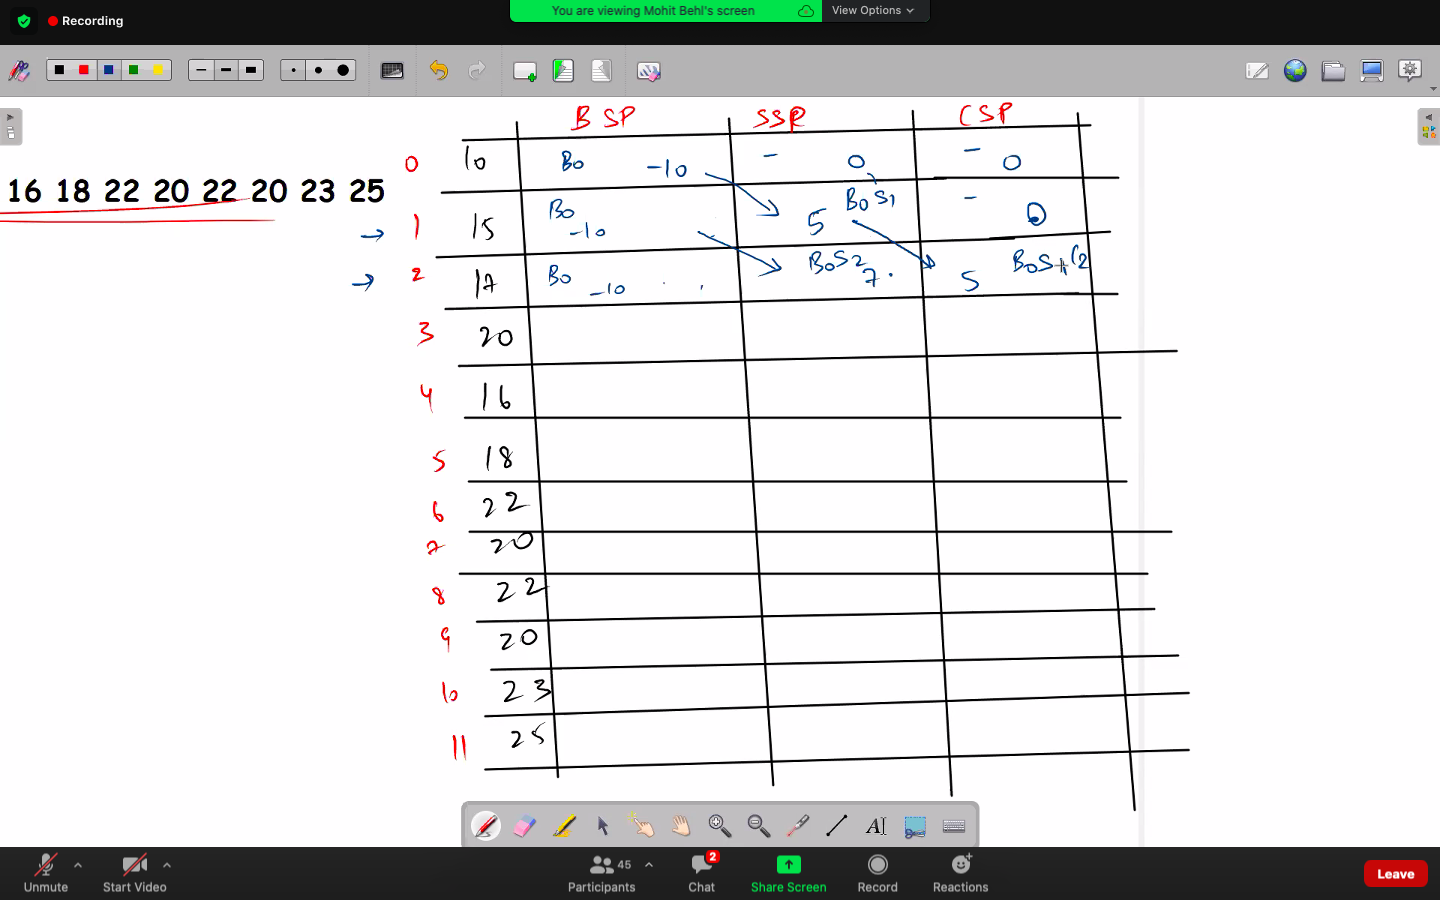 Recording
You are viewing Mohit Behl's screen
View Options
BSP SSP CSP
0 10 B0 -10 - 0 - 0
16 18 22 20 22 20 23 25
1 15 B0 -10 5 B0S1 - 0
2 17 B0 -10 B0S2 7 5 B0S1C2
3 20
4 16
5 18
6 22
7 20
8 22
9 20
10 23
11 25
Unmute
Start Video
45
Participants
2
Chat
Share Screen
Record
Reactions
Leave